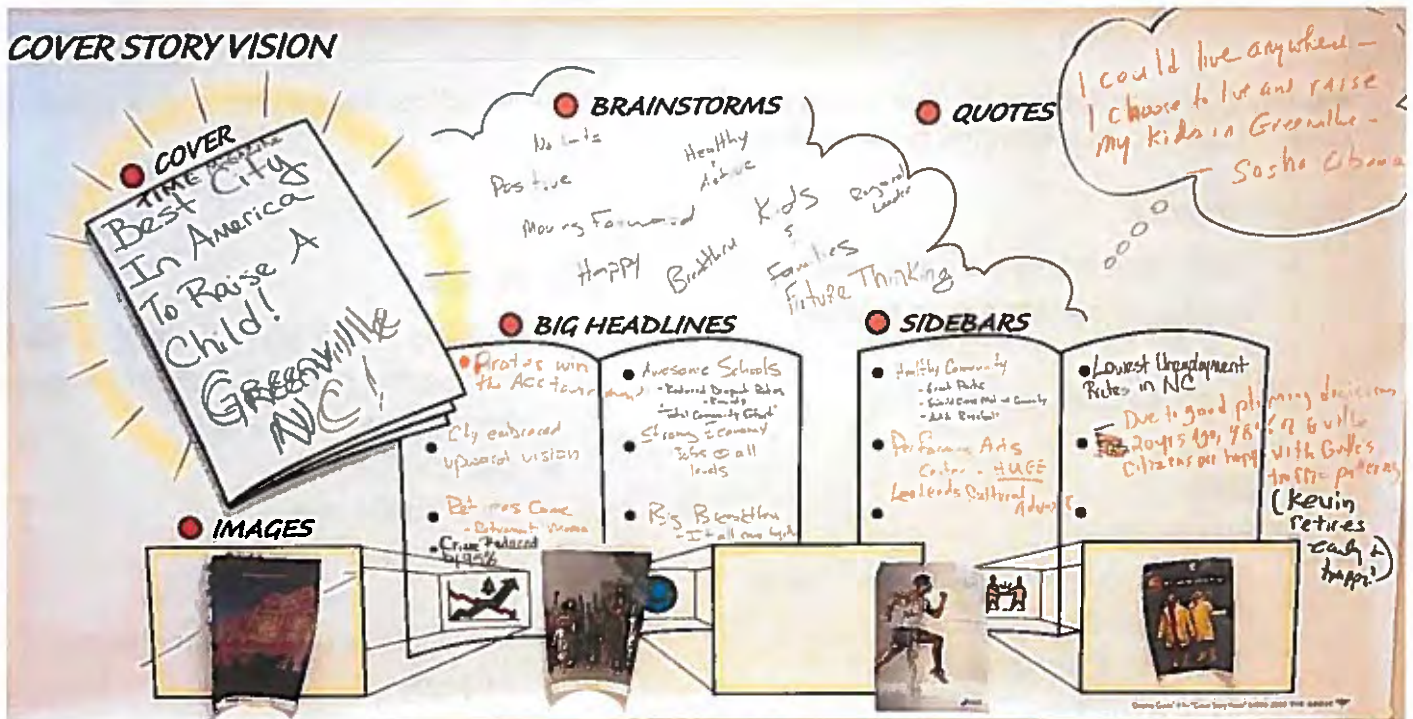 COVER STORY VISION
COVER
TIME MAGAZINE
Best City
In America
To Raise A
Child!
GREENVILLE
NC!
BRAINSTORMS
Healthy
Active
Positive
Moving Forward
Kids
Regional
Leader
Happy
Breakthru
Families
Future Thinking
QUOTES
I could live anywhere -
I choose to live and raise
my kids in Greenville -
- Sasha Obama
BIG HEADLINES
Pirates win
the ACC tournament
City embraced
upward vision
Come
- Retirement Mecca
Crime Reduced
by 95%
Awesome Schools
- Reduced Dropout Rates
- Total Community Effort
Strong Economy
Jobs @ all
levels
Big Breakthru
- It all
SIDEBARS
Healthy Community
- Great Parks
Performing Arts
Center - HUGE
Cultural
Lowest Unemployment
Rates in NC
- Due to good planning decisions
20 yrs ago, 98% of G'ville
Citizens are happy with G'ville's
traffic patterns
(Kevin
retires
early &
happy!)
IMAGES